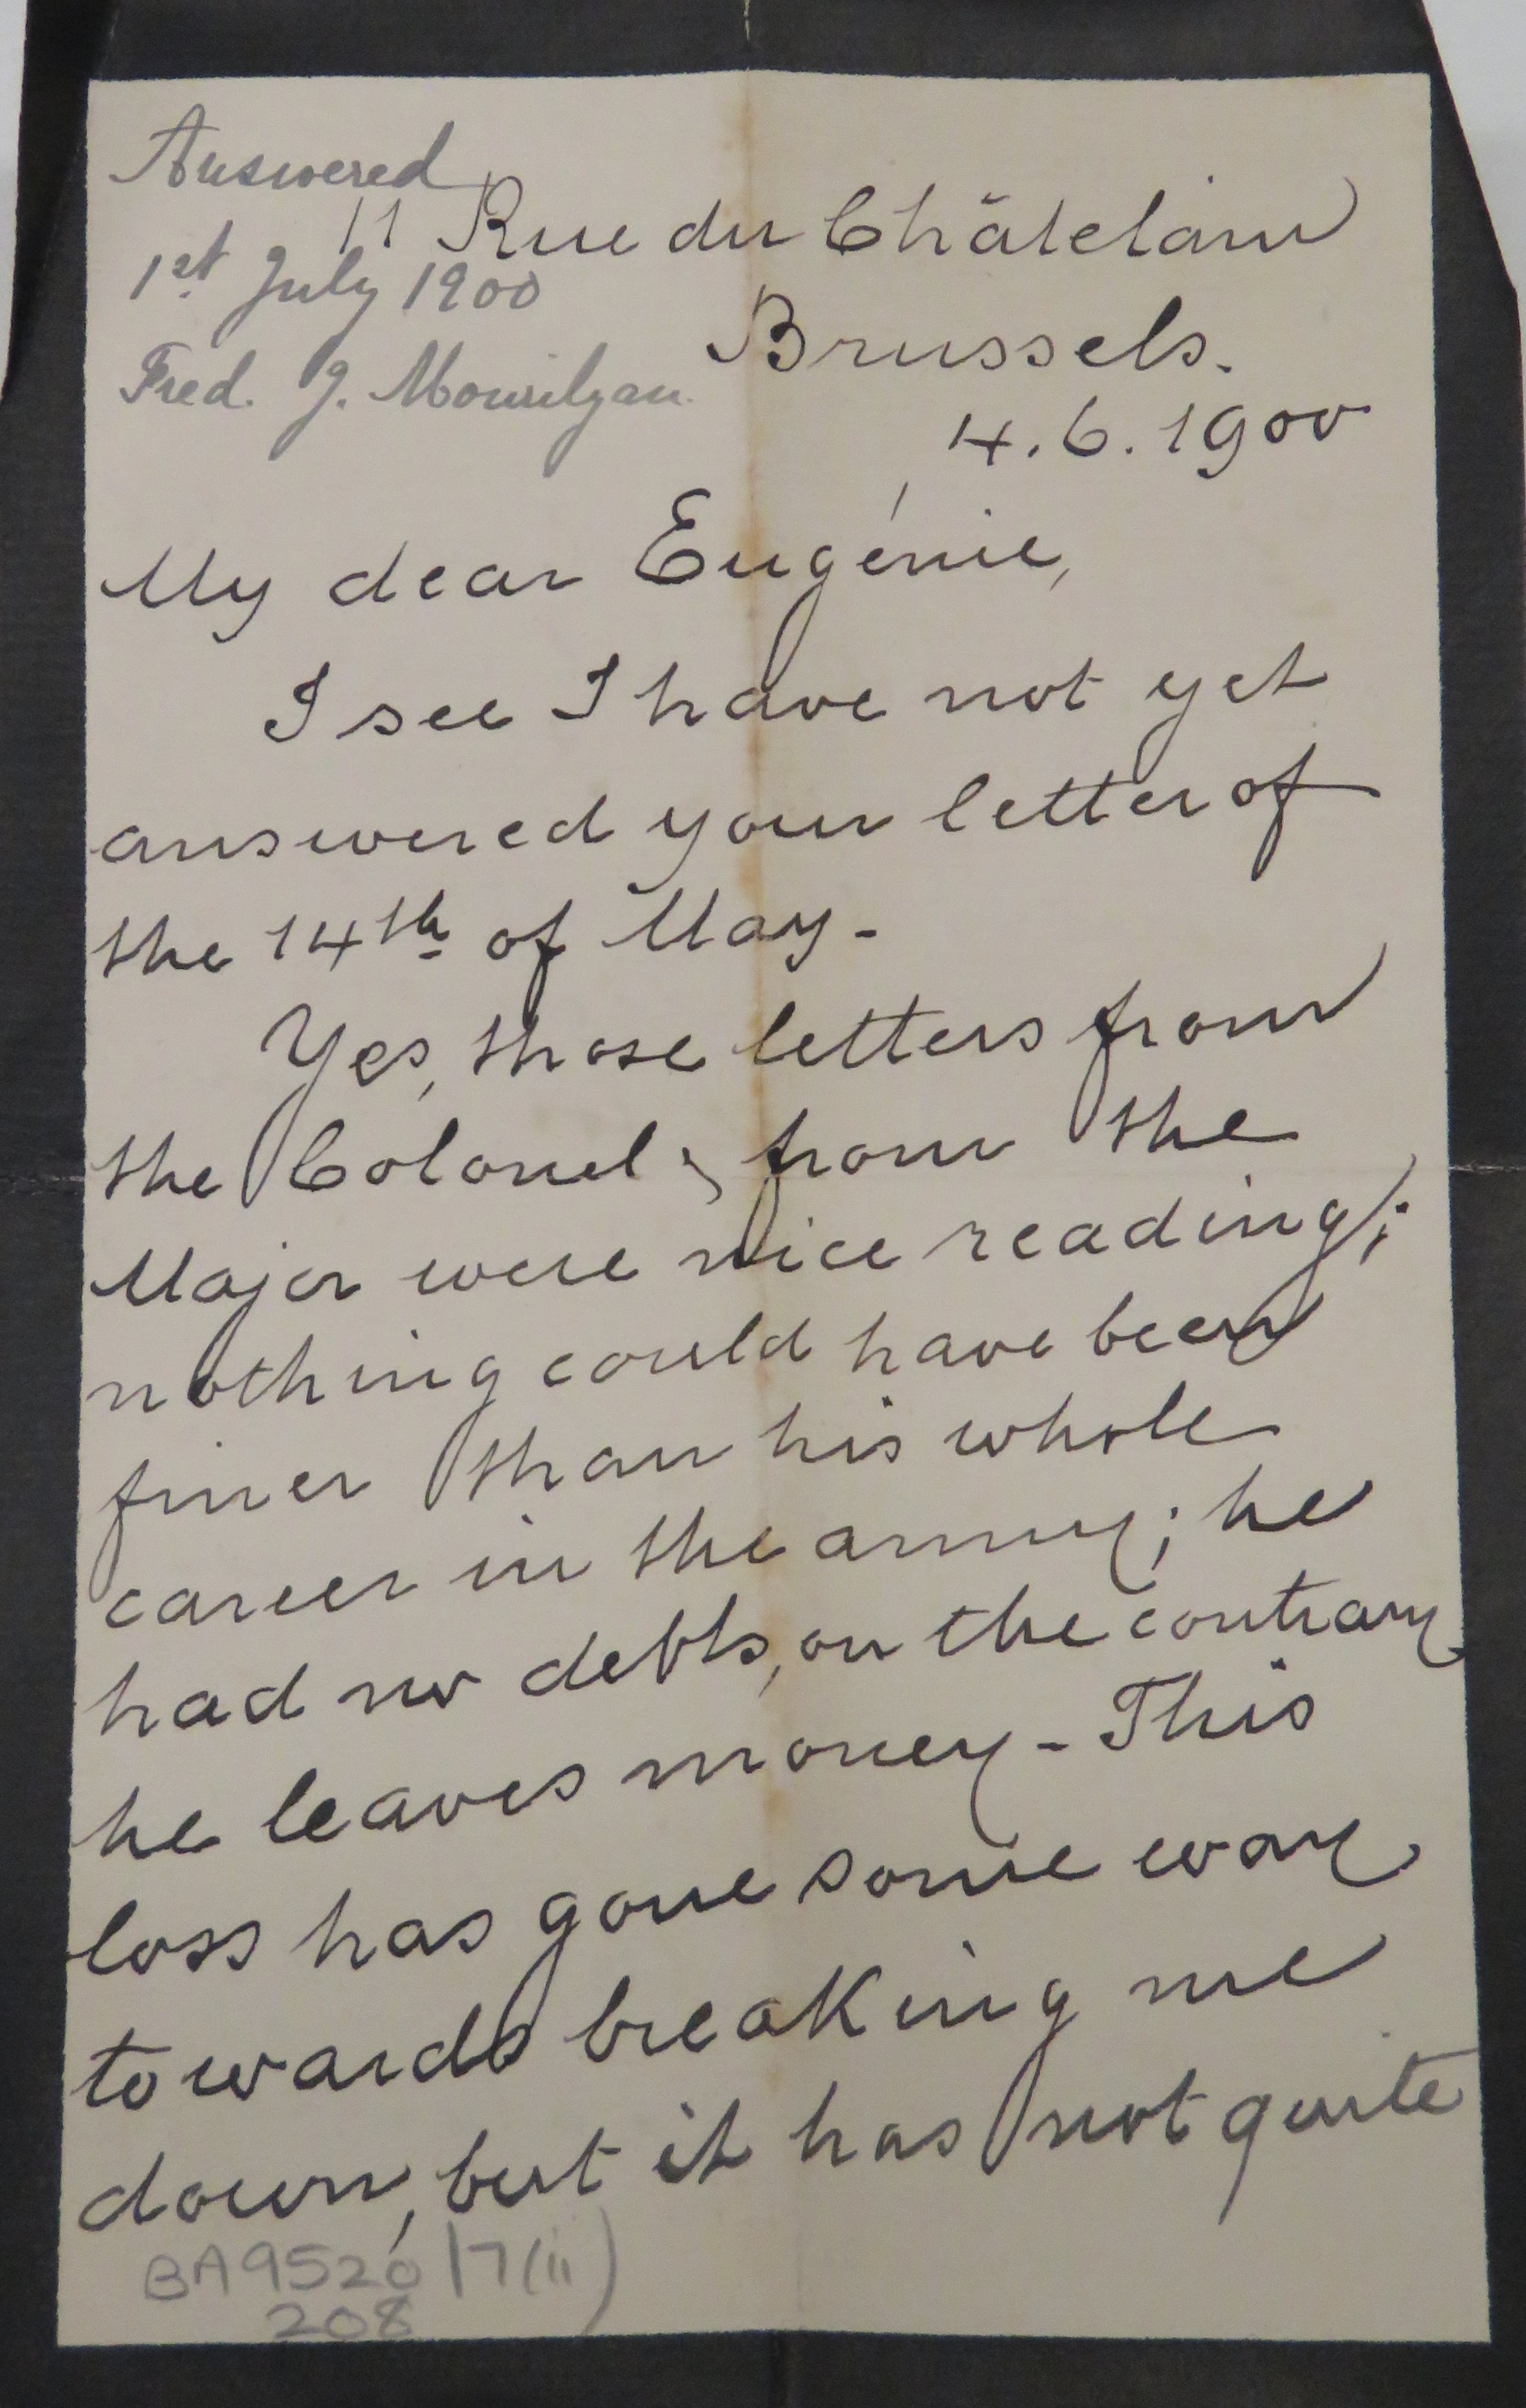 Answered
1st July 1900
Fred. J. Mourilyan.
11 Rue du Châtelain
Brussels.
4.6.1900
My dear Eugénie,
I see I have not yet
answered your letter of
the 14th of May -
Yes, those letters from
the Colonel & from the
Major were nice reading;
nothing could have been
finer than his whole
career in the army; he
had no debts, on the contrary
he leaves money - This
loss has gone some way
towards breaking me
down, but it has not quite
BA9520/7(ii)
208